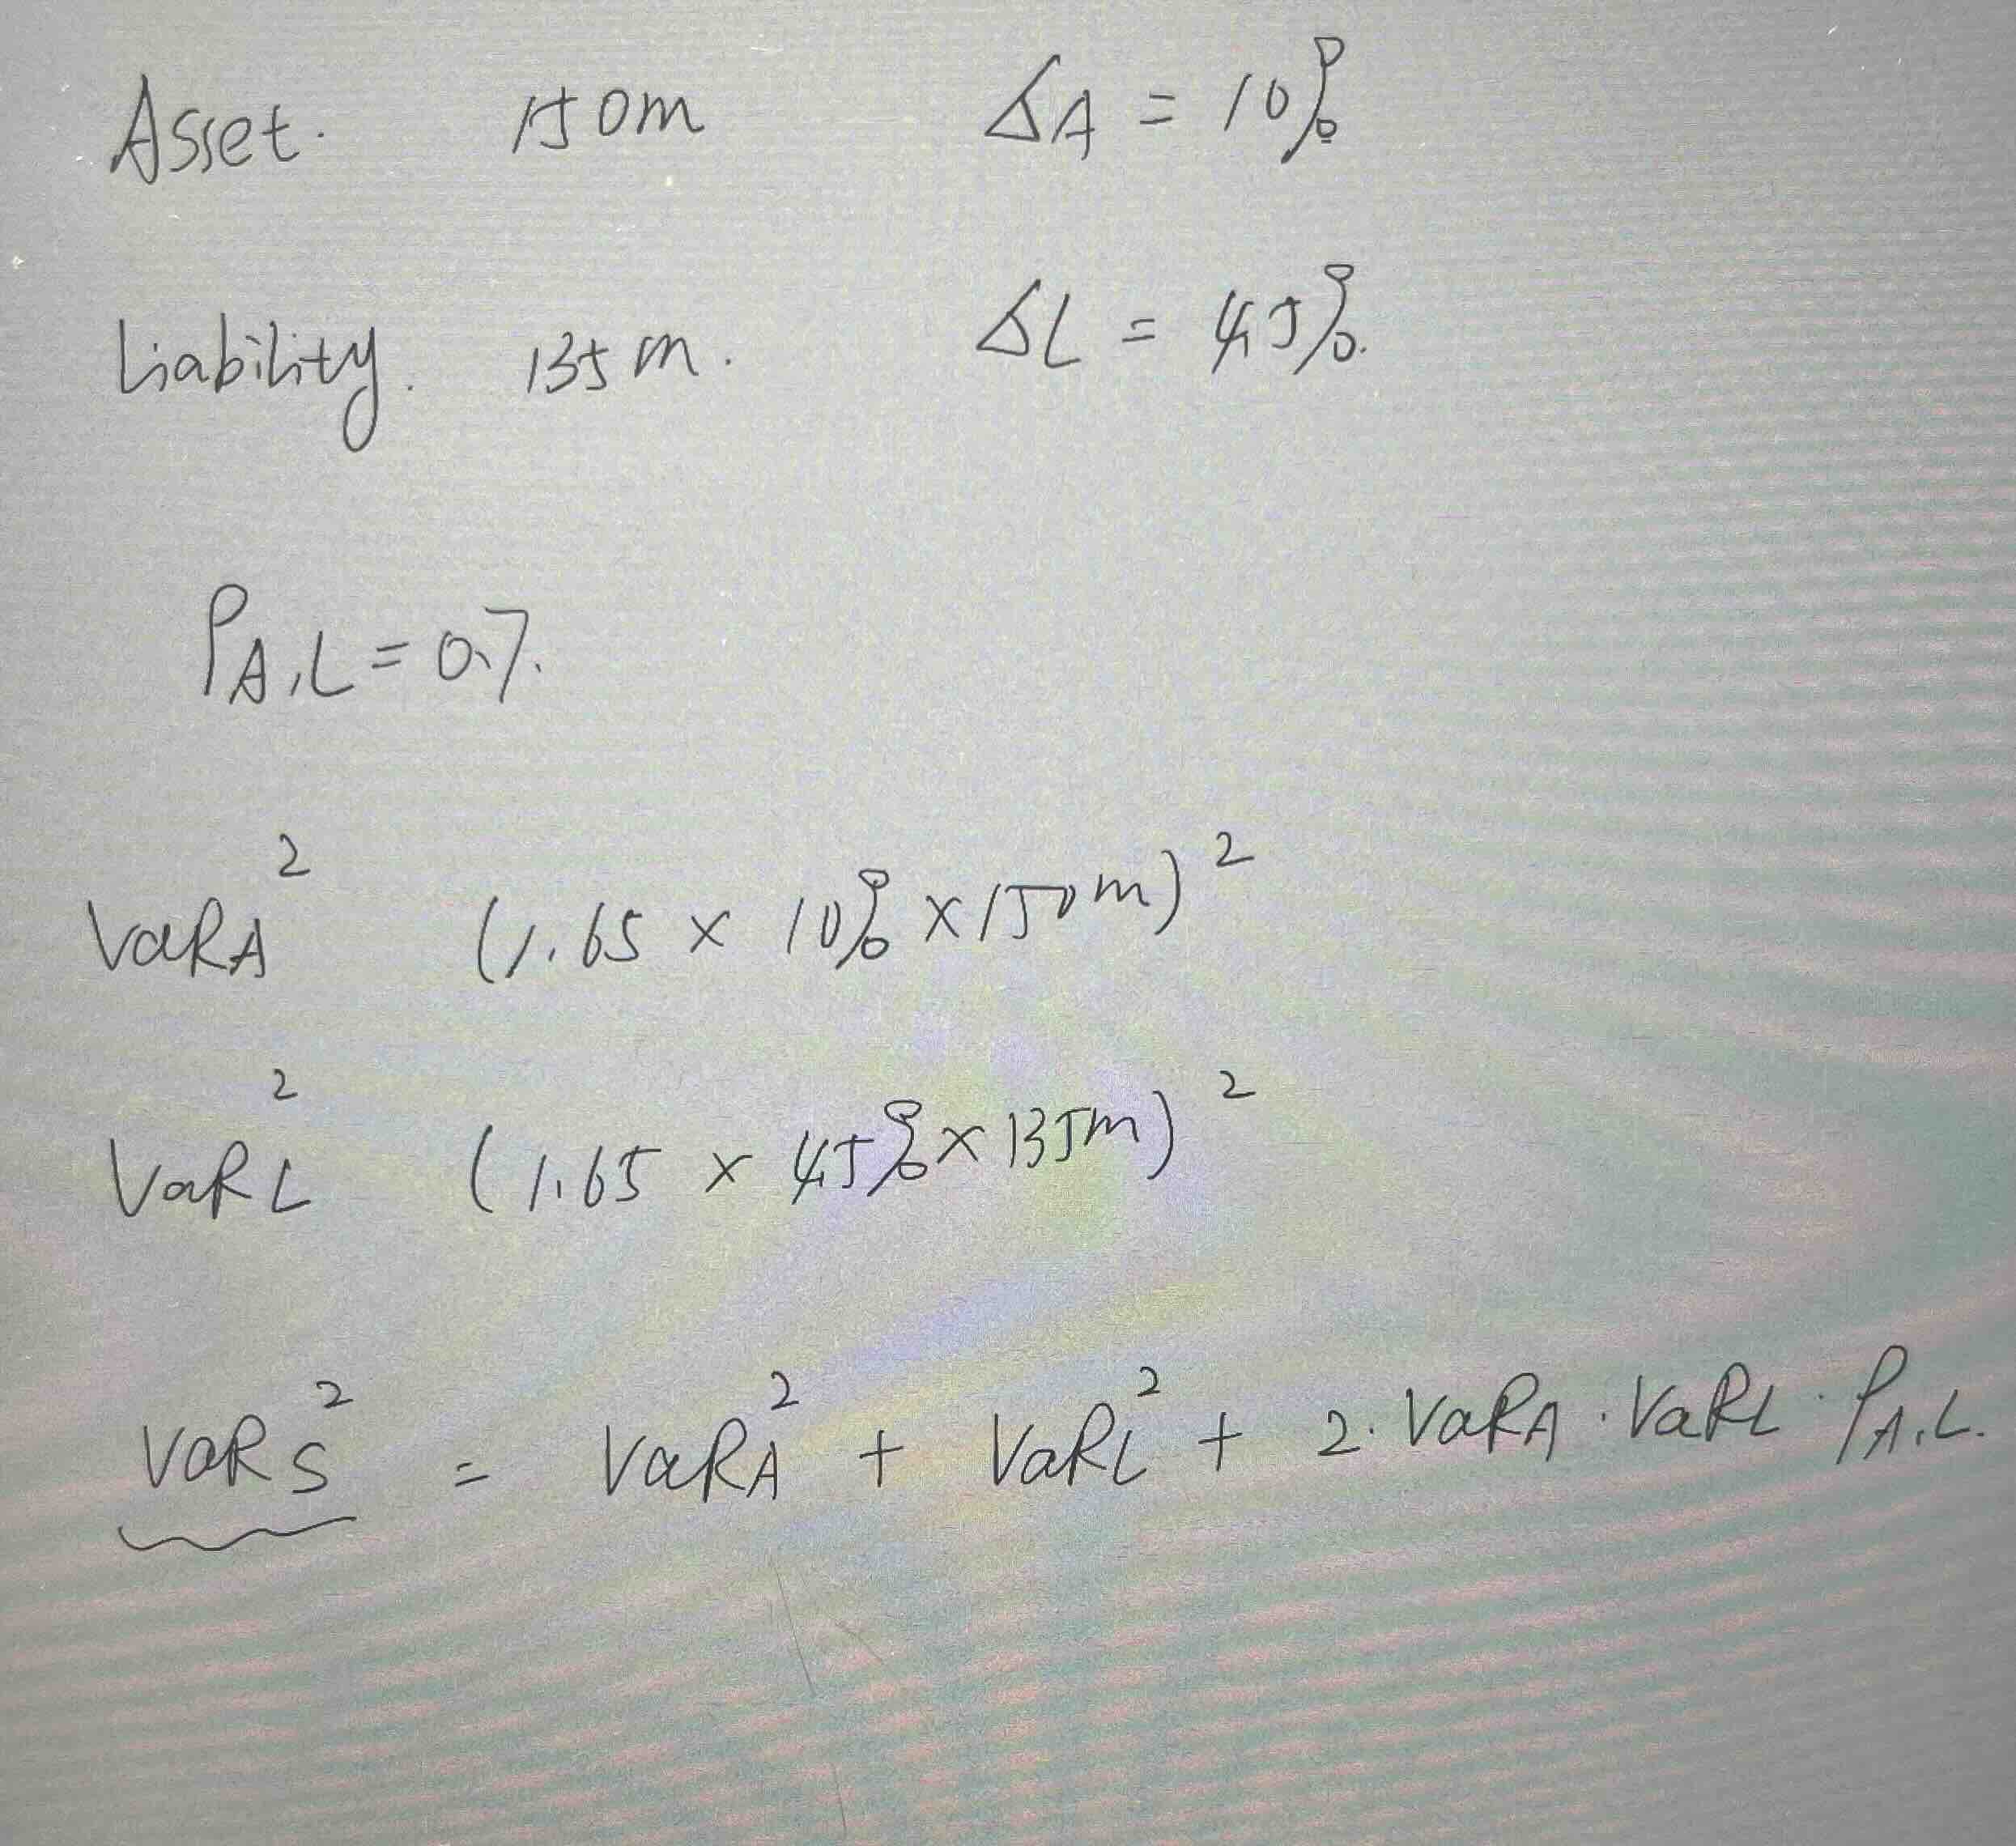 Asset. 150m δA = 10%
Liability. 135m. δL = 4.5%.
ρA,L = 0.7.
VaRA² (1.65 × 10% × 150m)²
VaRL² (1.65 × 4.5% × 135m)²
VaRS² = VaRA² + VaRL² + 2·VaRA·VaRL·ρA,L.